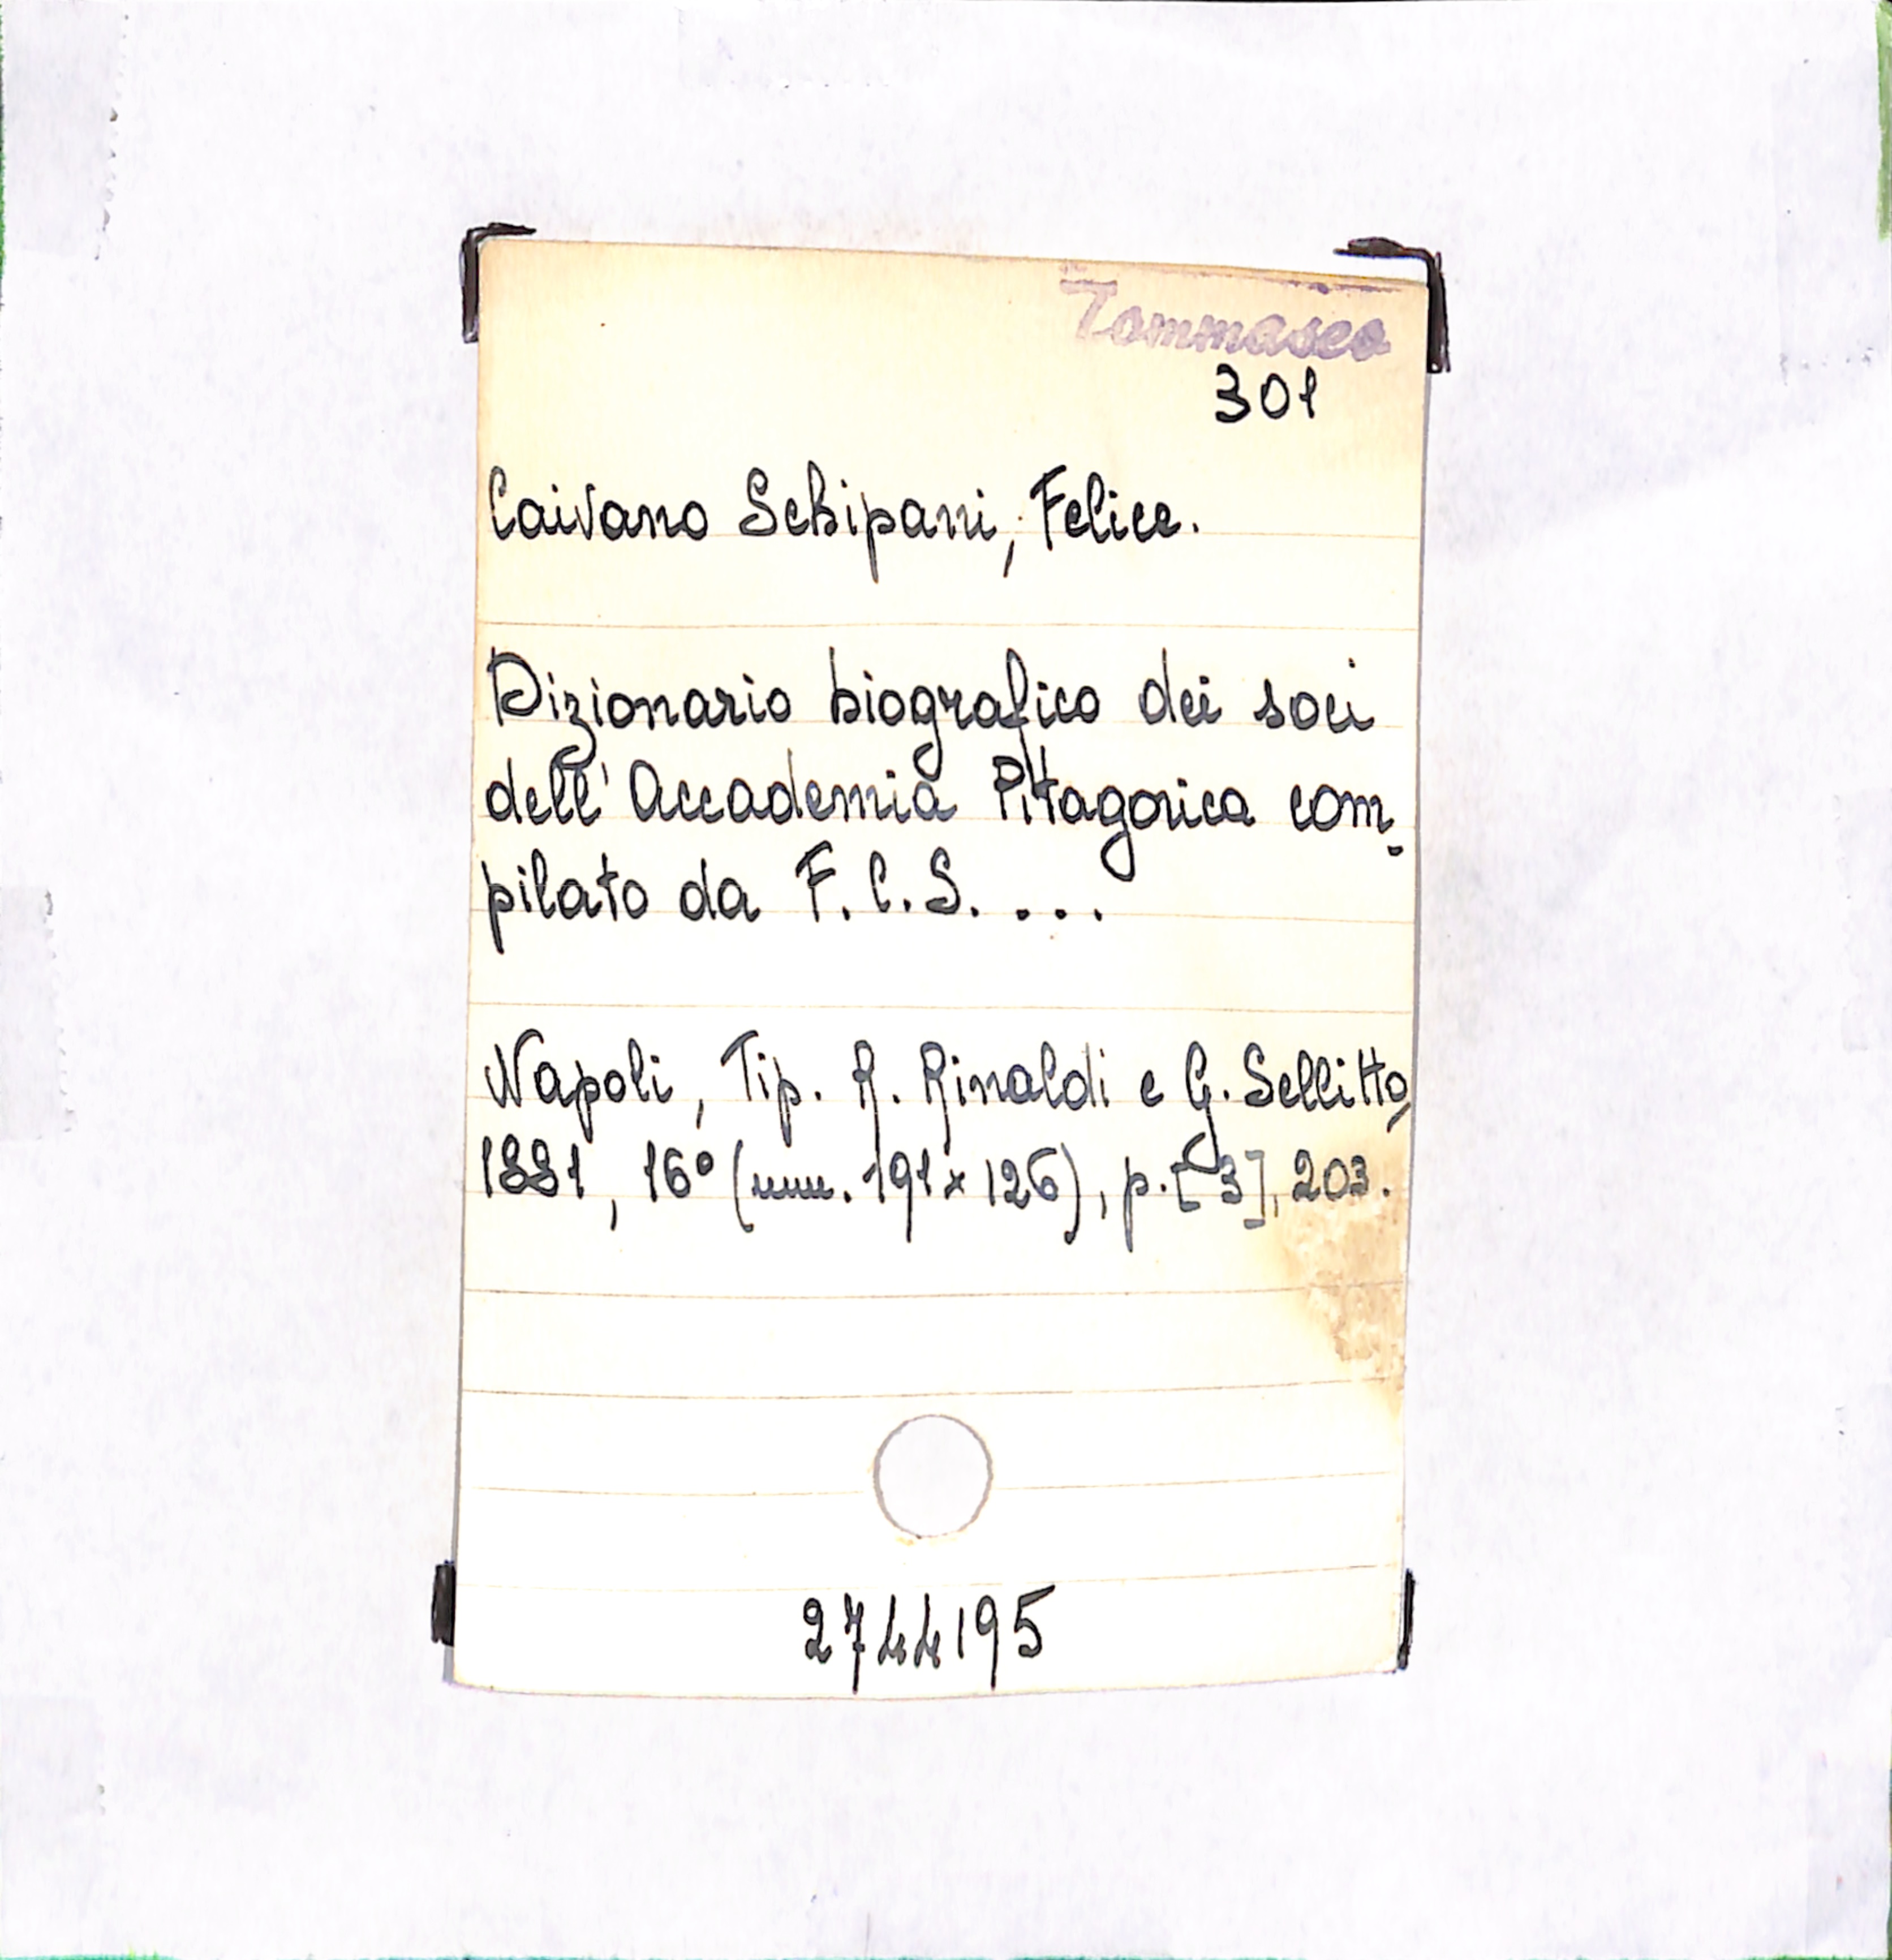 Tommaseo
301
Caivano Schipani, Felice.
Dizionario biografico dei soci
dell'Accademia Pitagorica com-
pilato da F.C.S. ...
Napoli, Tip. R. Rinaldi e G. Sellitto,
1881, 16° (mm. 191x126), p. [3], 203.
2744195